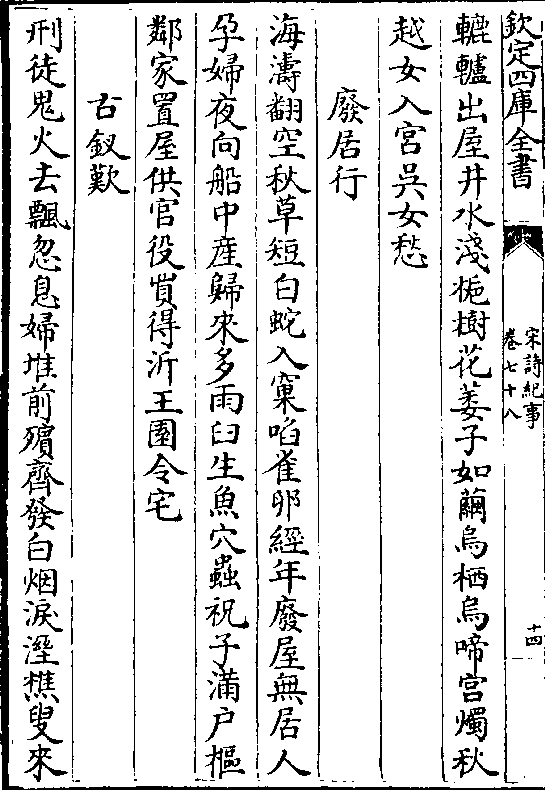 欽定四庫全書
宋詩紀事
卷七十八
十四
轆轤出屋井水淺梔樹花萎子如繭烏栖烏啼宮燭秋
越女入宮吳女愁
廢居行
海濤翻空秋草短白蛇入窠啗雀卵經年廢屋無居人
孕婦夜向船中産歸來多雨臼生魚穴蟲祝子滿户樞
鄰家置屋供官役買得沂王園令宅
古釵歎
刑徒鬼火去飄忽息婦堆前殯齊發白烟淚溼樵叟來